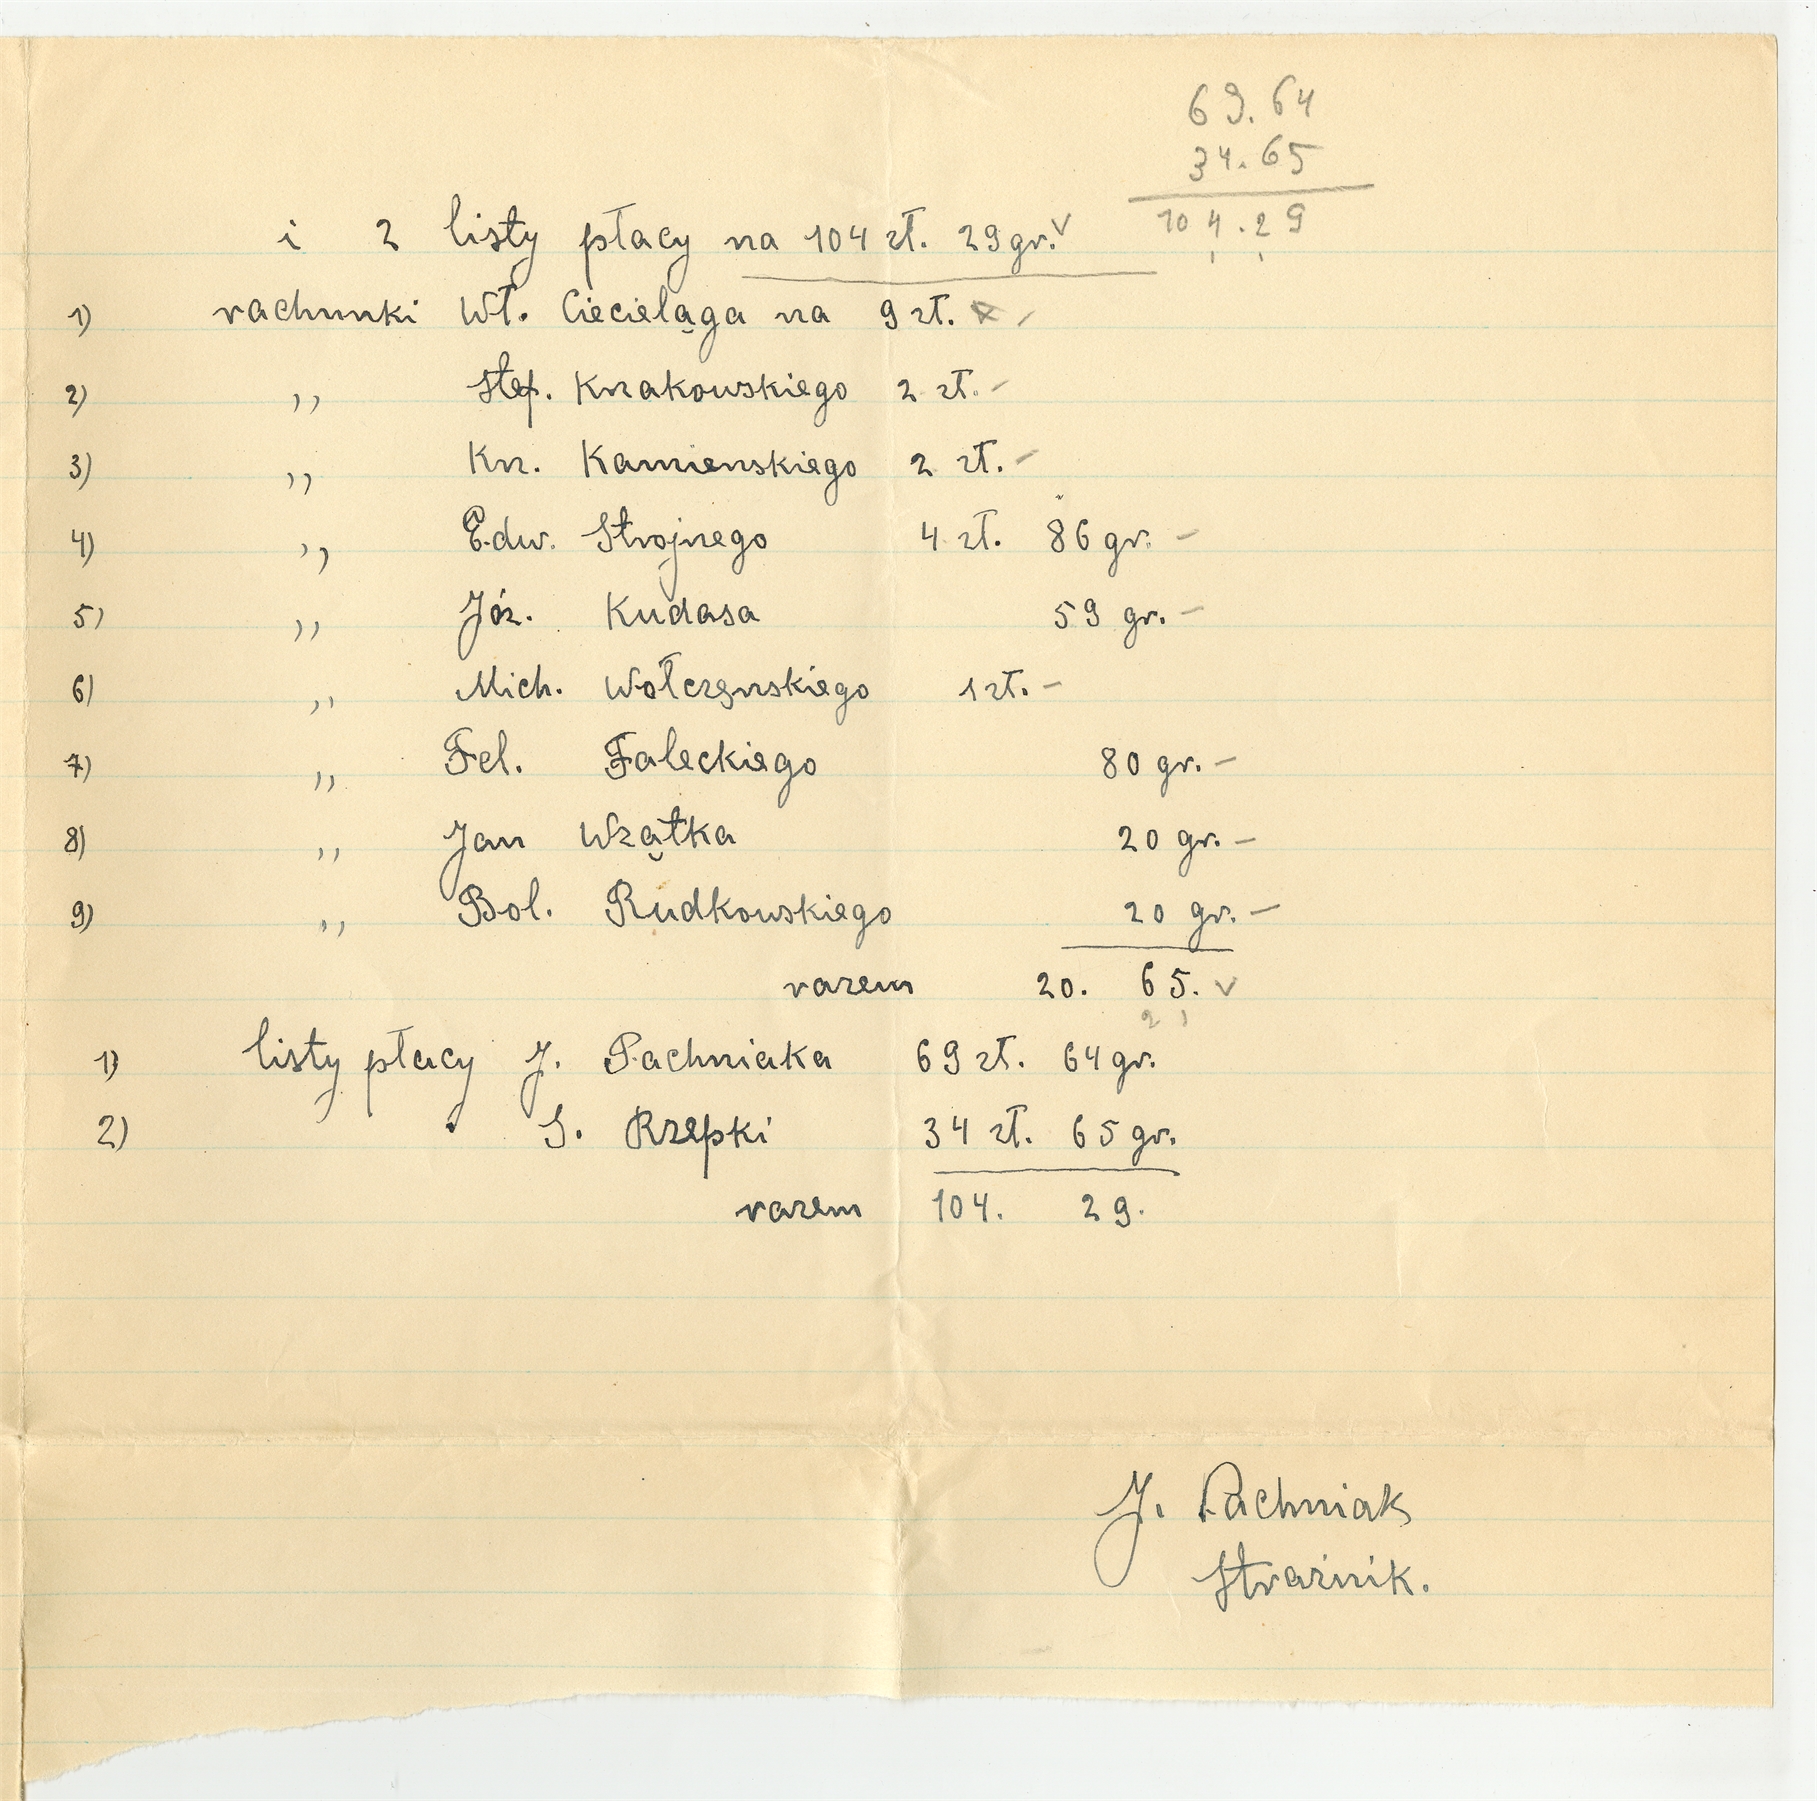 69.64
34.65
104.29
i 2 listy płacy na 104 zł. 29 gr. v
1) rachunki Wł. Ciecieląga na 9 zł. -
2) ,, Stef. Krakowskiego 2 zł. -
3) ,, Kr. Kamienskiego 2 zł. -
4) ,, Edw. Strojnego 4 zł. 86 gr. -
5) ,, Józ. Kudasa 59 gr. -
6) ,, Mich. Wołczynskiego 1 zł. -
7) ,, Fel. Faleckiego 80 gr. -
8) ,, Jan Wzątka 20 gr. -
9) ,, Bol. Rudkowskiego 20 gr. -
razem 20. 65. v
2 1
1) listy płacy J. Pachniaka 69 zł. 64 gr.
2) S. Rzepki 34 zł. 65 gr.
razem 104. 29.
J. Pachniak
Strażnik.